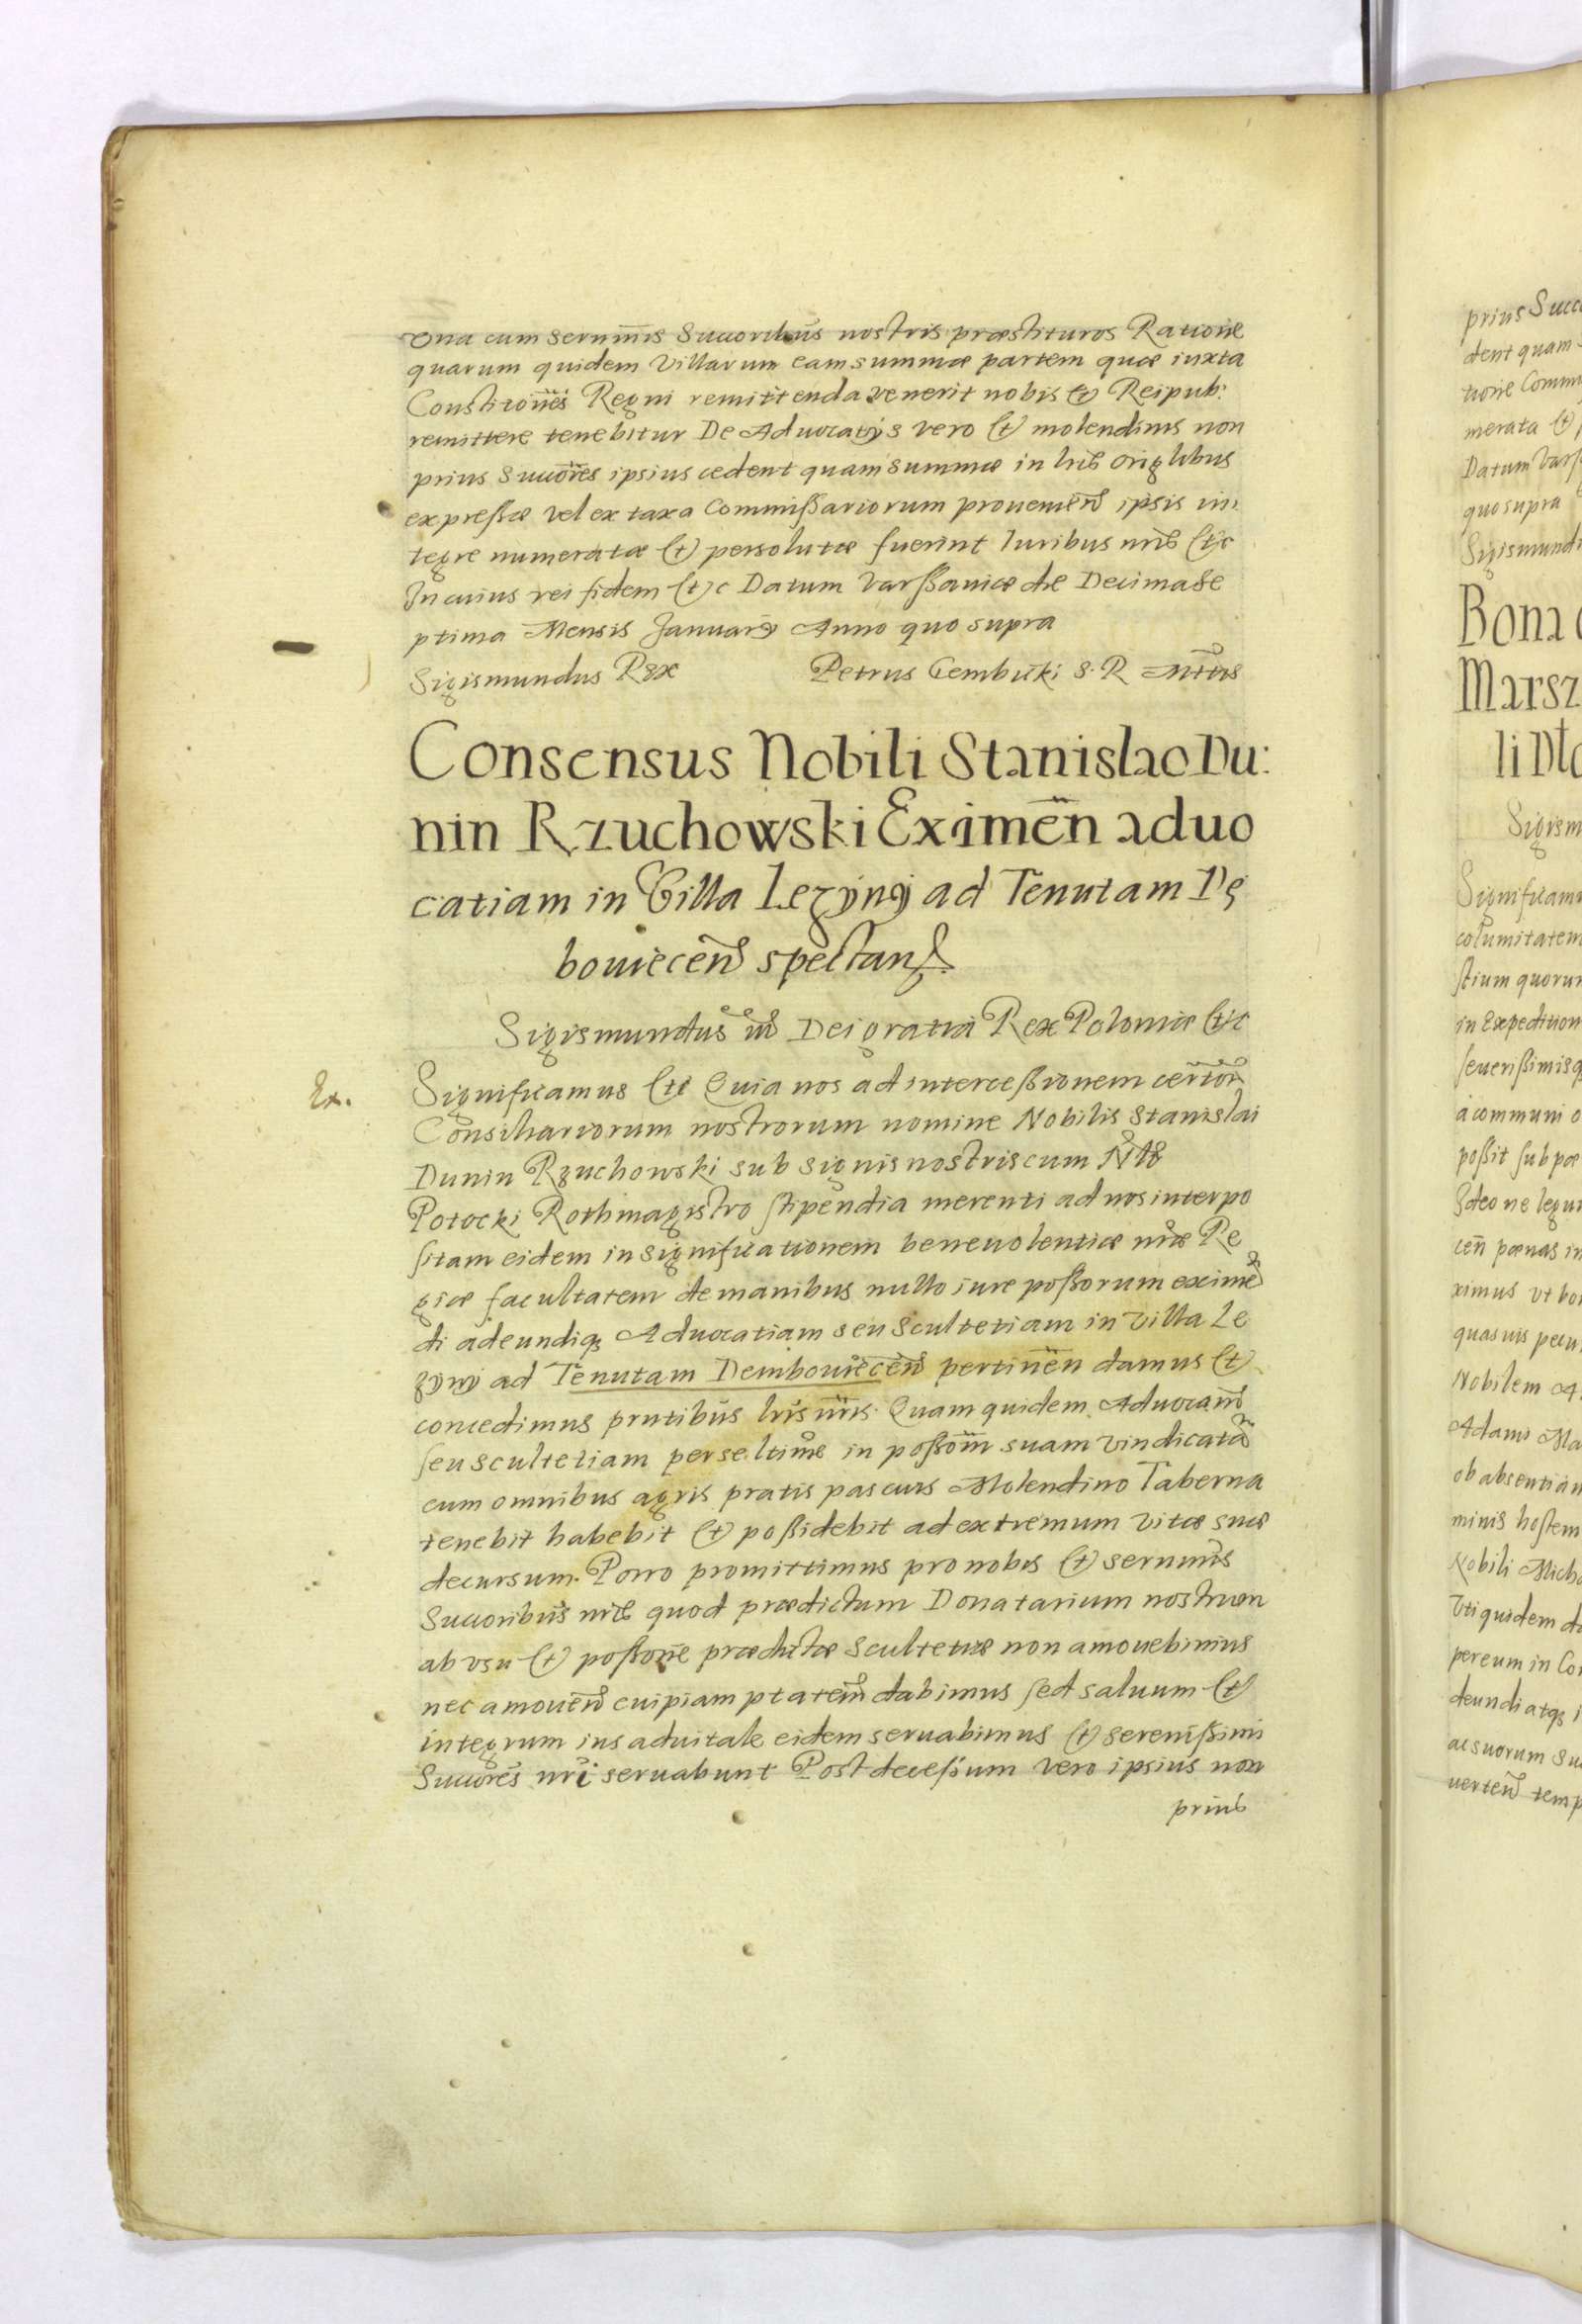 Una cum sernimis Succoribus nostris præstituros Ratione
quarum quidem villarum eam summæ partem quæ iuxta
Constitiones Regni remittenda venerit nobis et Reipub:
remittere tenebitur De Advocatijs vero et molendinis non
prius Succores ipsius cedent quam summæ in lris origlibus
expressæ vel ex taxa Commissariorum provenien ipsis in
tegre numeratæ et persolutæ fuerint Iuribus nris etc
In cuius rei fidem etc Datum Varssaviæ die Decima Se
ptima Mensis Januarij Anno quo supra
Sigismundus Rex Petrus Gembicki S. R. Mtis
Consensus Nobili Stanislao Du:
nin Rzuchowski Eximen aduo
catiam in Villa Lezyny ad Tenutam Dę
bouiecen spectan
Sigismundus III Dei gratia Rex Poloniæ etc
Ex.
Significamus etc Quia nos ad intercessionem certor
Consiliariorum nostrorum nomine Nobilis Stanislai
Dunin Rzuchowski sub signis nostris cum
Potocki Rothmagistro stipendia merenti ad nos interpo
sitam eidem in significationem beneuolentiæ nræ Re
giæ facultatem de manibus nullo iure possorum eximen
di adeundiq Aduocatiam seu Scultetiam in villa Le
zyny ad Tenutam Dembouiecen pertinen damus et
concedimus pntibus lris nris. Quam quidem Aduocam
seu scultetiam per se ltime in possom suam vindicatã
cum omnibus agris pratis pascuis Molendino Taberna
tenebit habebit et possidebit ad extremum vitæ suæ
decursum. Porro promittimus pro nobis et sernimis
Succoribus nris quod prædictum Donatarium nostrum
ab vsu et possone prædictæ Scultetiæ non amouebimus
nec amouen cuipiam ptatem dabimus sed saluum et
integrum ius aduitale eidem seruabimus et serenissimi
Succores nri seruabunt Post decessum vero ipsius non
prius
prius Succ
dent quam
tione Comm
merata et
Datum Vars
quo supra
Sigismund
Bona
Marsz
li Dło
Sigism
Significam
columitatem
stium quorum
in Expedition
seuerissimisq
a communi
possit sub pœ
Ideo ne legu
cen pœnas in
ximus vt bo
quasuis pecu
Nobilem A
Adami Ma
ob absentiam
minis hostem
Nobili Micha
Vti quidem d
per eum in Co
deundi atqs
ac suorum Su
uerten temp